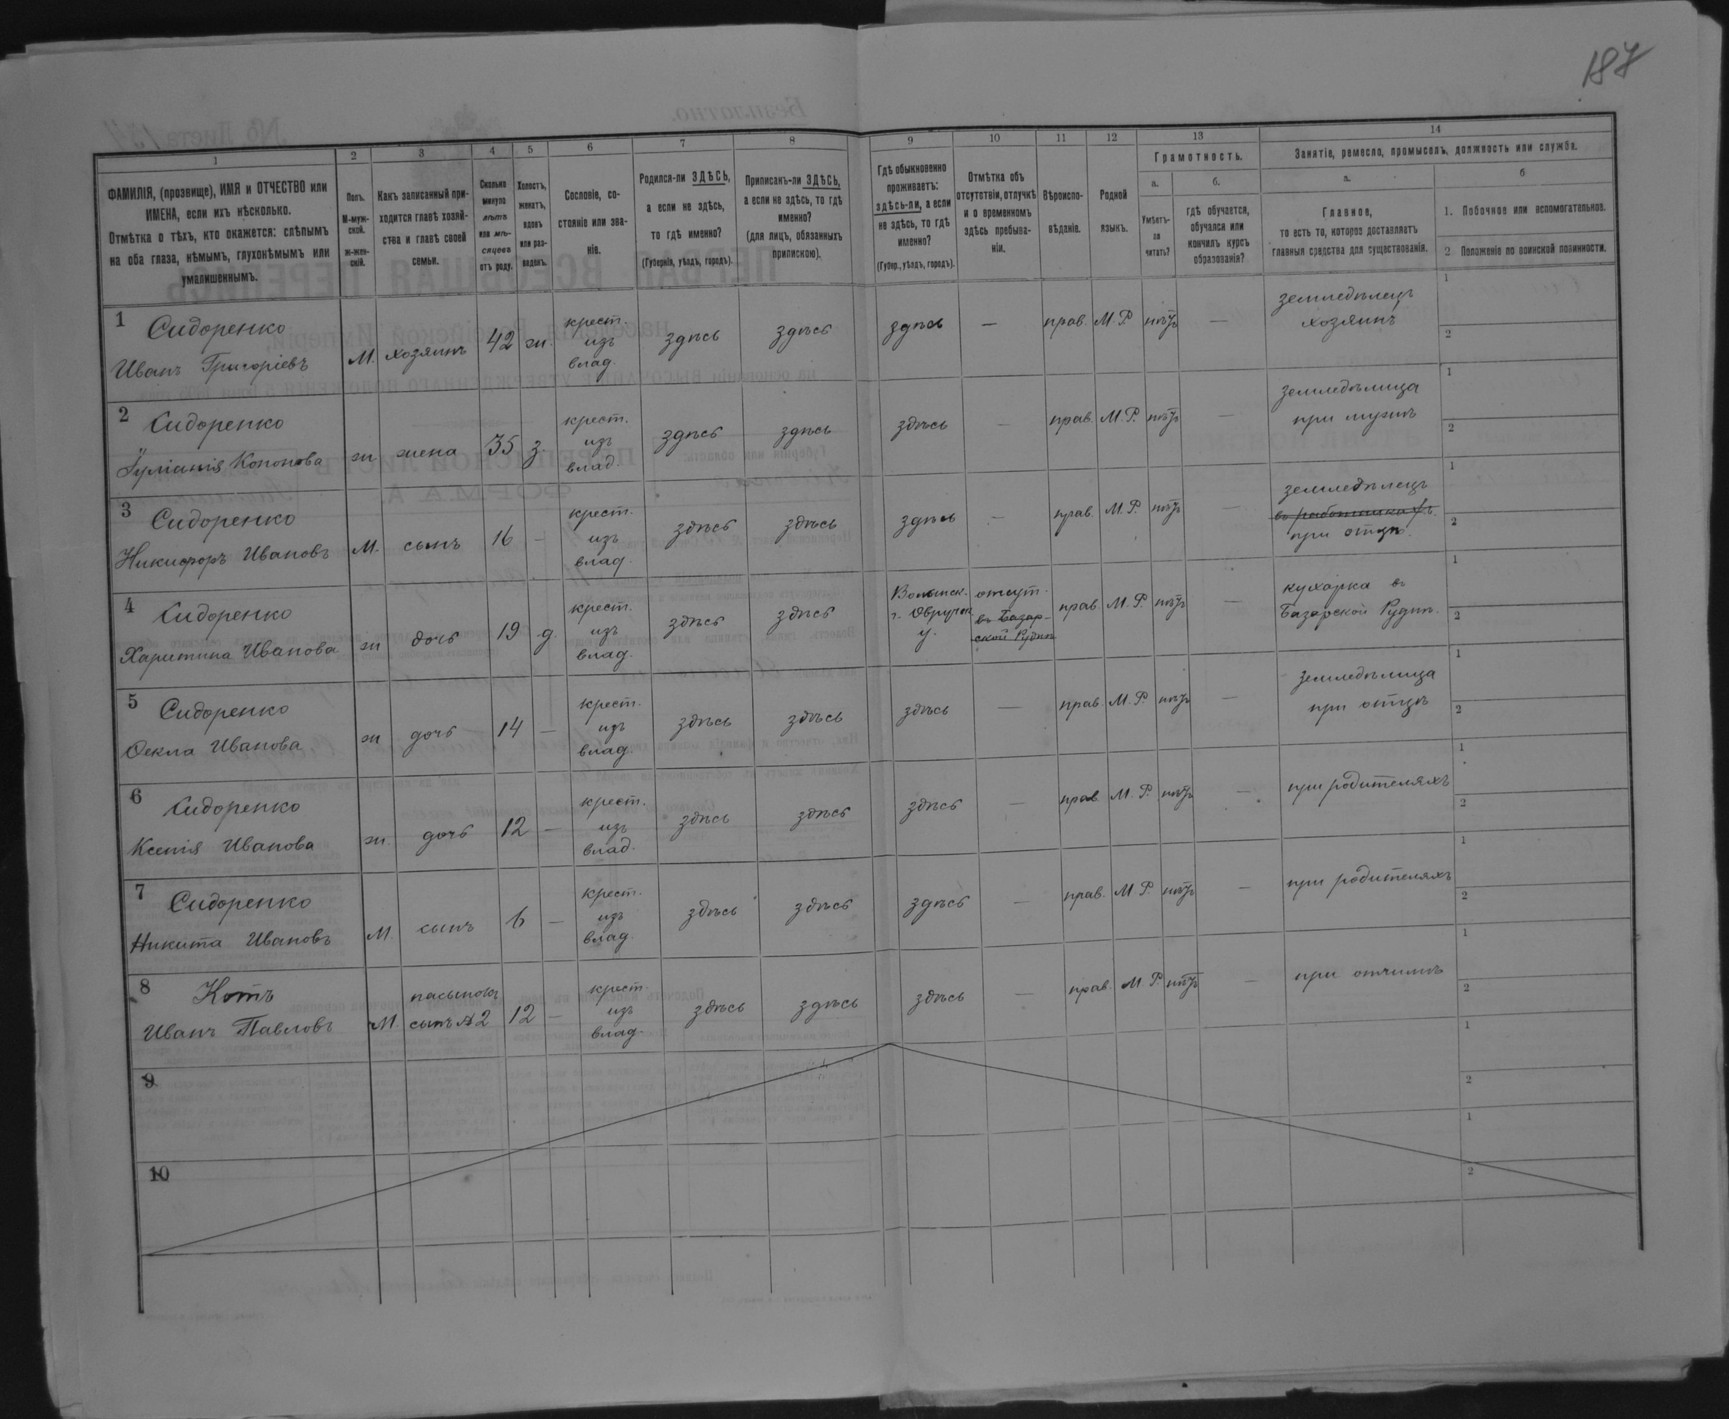 187
1
2
3
4
5
6
7
8
9
10
11
12
13
14
ФАМИЛІЯ, (прозвище), ИМЯ и ОТЧЕСТВО или
ИМЕНА, если ихъ нѣсколько.
Отмѣтка о тѣхъ, кто окажется: слѣпымъ
на оба глаза, нѣмымъ, глухонѣмымъ или
умалишеннымъ.
Полъ.
М-муж-
ской.
Ж-жен-
скій.
Какъ записанный при-
ходится главѣ хозяй-
ства и главѣ своей
семьи.
Сколько
минуло
лѣтъ
или мѣ-
сяцевъ
отъ роду.
Холостъ,
женатъ,
вдовъ
или раз-
веденъ.
Сословіе, со-
стояніе или зва-
ніе.
Родился-ли ЗДѢСЬ,
а если не здѣсь,
то гдѣ именно?
(Губернія, уѣздъ, городъ).
Приписанъ-ли ЗДѢСЬ,
а если не здѣсь, то гдѣ
именно?
(для лицъ, обязанныхъ
припискою).
Гдѣ обыкновенно
проживаетъ:
здѣсь-ли, а если
не здѣсь, то гдѣ
именно?
(Губер., уѣздъ, городъ).
Отмѣтка объ
отсутствіи, отлучкѣ
и о временномъ
здѣсь пребыва-
ніи.
Вѣроиспо-
вѣданіе.
Родной
языкъ.
Грамотность.
а.
б.
Умѣетъ-
ли
читать?
гдѣ обучается,
обучался или
кончилъ курсъ
образованія?
Занятіе, ремесло, промыселъ, должность или служба.
а.
б
Главное,
то есть то, которое доставляетъ
главныя средства для существованія.
1. Побочное или вспомогательное.
2 Положеніе по воинской повинности.
1 Сидоренко
Иванъ Григоріевъ
М. хозяинъ 42 ж. крест. изъ влад. здѣсь здѣсь здѣсь — прав. М.Р. нѣтъ —
земледѣлецъ
хозяинъ
1
2
2 Сидоренко
Іуліанія Кононова
ж жена 35 з. крест. изъ влад здѣсь здѣсь здѣсь — прав. М.Р. нѣтъ —
земледѣлица
при мужѣ
1
2
3 Сидоренко
Никифоръ Ивановъ
М. сынъ 16 — крест. изъ влад. здѣсь здѣсь здѣсь — прав. М.Р. нѣтъ —
земледѣлецъ
при отцѣ.
1
2
4 Сидоренко
Харитина Иванова
ж дочь 19 д. крест. изъ влад. здѣсь здѣсь
Волынск.
г. Овручск
у.
отсут.
въ Базар-
ской Руднѣ
прав М.Р. нѣтъ —
кухарка въ
Базарской Руднѣ.
1
2
5 Сидоренко
Ѳекла Иванова
ж дочь 14 — крест. изъ влад. здѣсь здѣсь здѣсь — прав. М.Р. нѣтъ —
земледѣлица
при отцѣ
1
2
6 Сидоренко
Ксенія Иванова
ж. дочь 12 — крест. изъ влад. здѣсь здѣсь здѣсь — прав. М.Р. нѣтъ —
при родителяхъ
1
2
7 Сидоренко
Никита Ивановъ
М. сынъ 6 — крест. изъ влад. здѣсь здѣсь здѣсь — прав. М.Р. нѣтъ —
при родителяхъ
1
2
8 Котъ
Иванъ Павловъ
М.
пасынокъ
сынъ №2
12 — крест. изъ влад. здѣсь здѣсь здѣсь — прав. М.Р. нѣтъ —
при отчимѣ
1
2
9
1
2
10
1
2